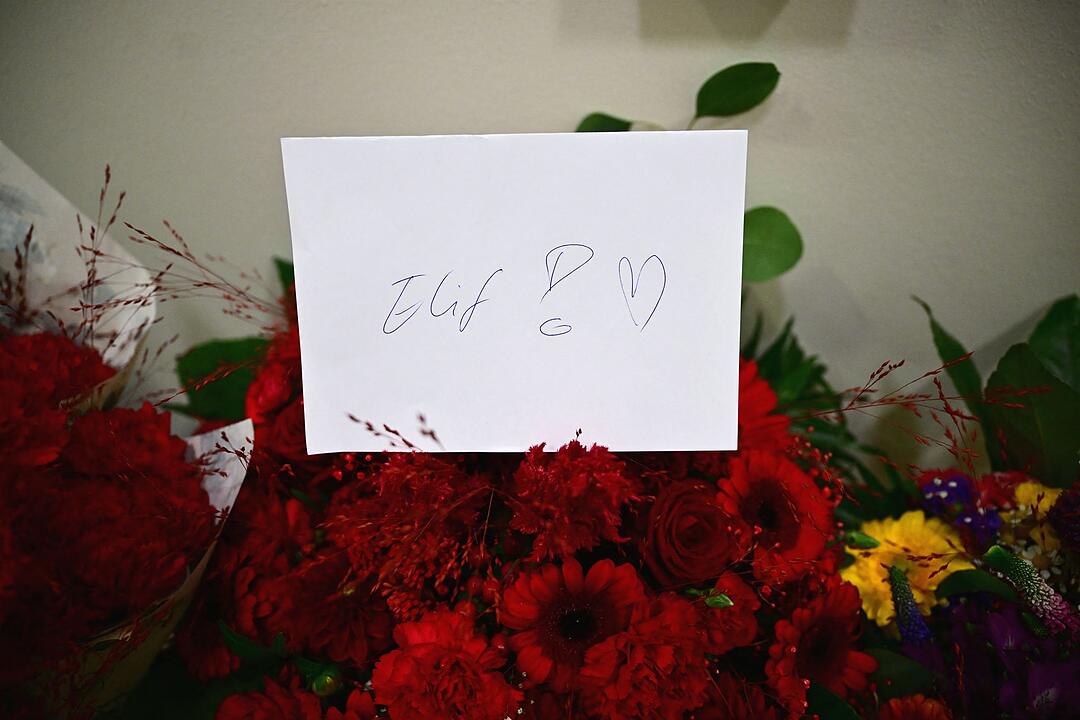 Elif ! ♡